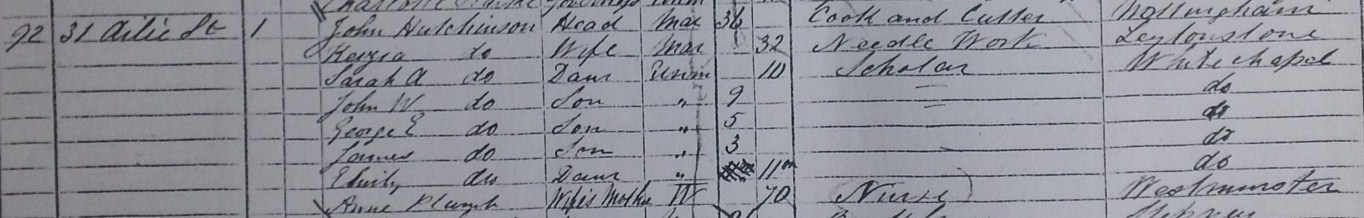 92 31 Alie St 1 John Hutchinson Head Mar 36 Cook and Cutter Nottingham
Kezia do Wife Mar 32 Needle Work Leytonstone
Sarah A do Daur Unm 10 Scholar Whitechapel
John W do Son " 9 — do
George E do Son " 5 — do
James do Son " 3 do
Emily do Daur " 11m do
Anne Plumb Wife's Mother W 70 Nurse Westminster